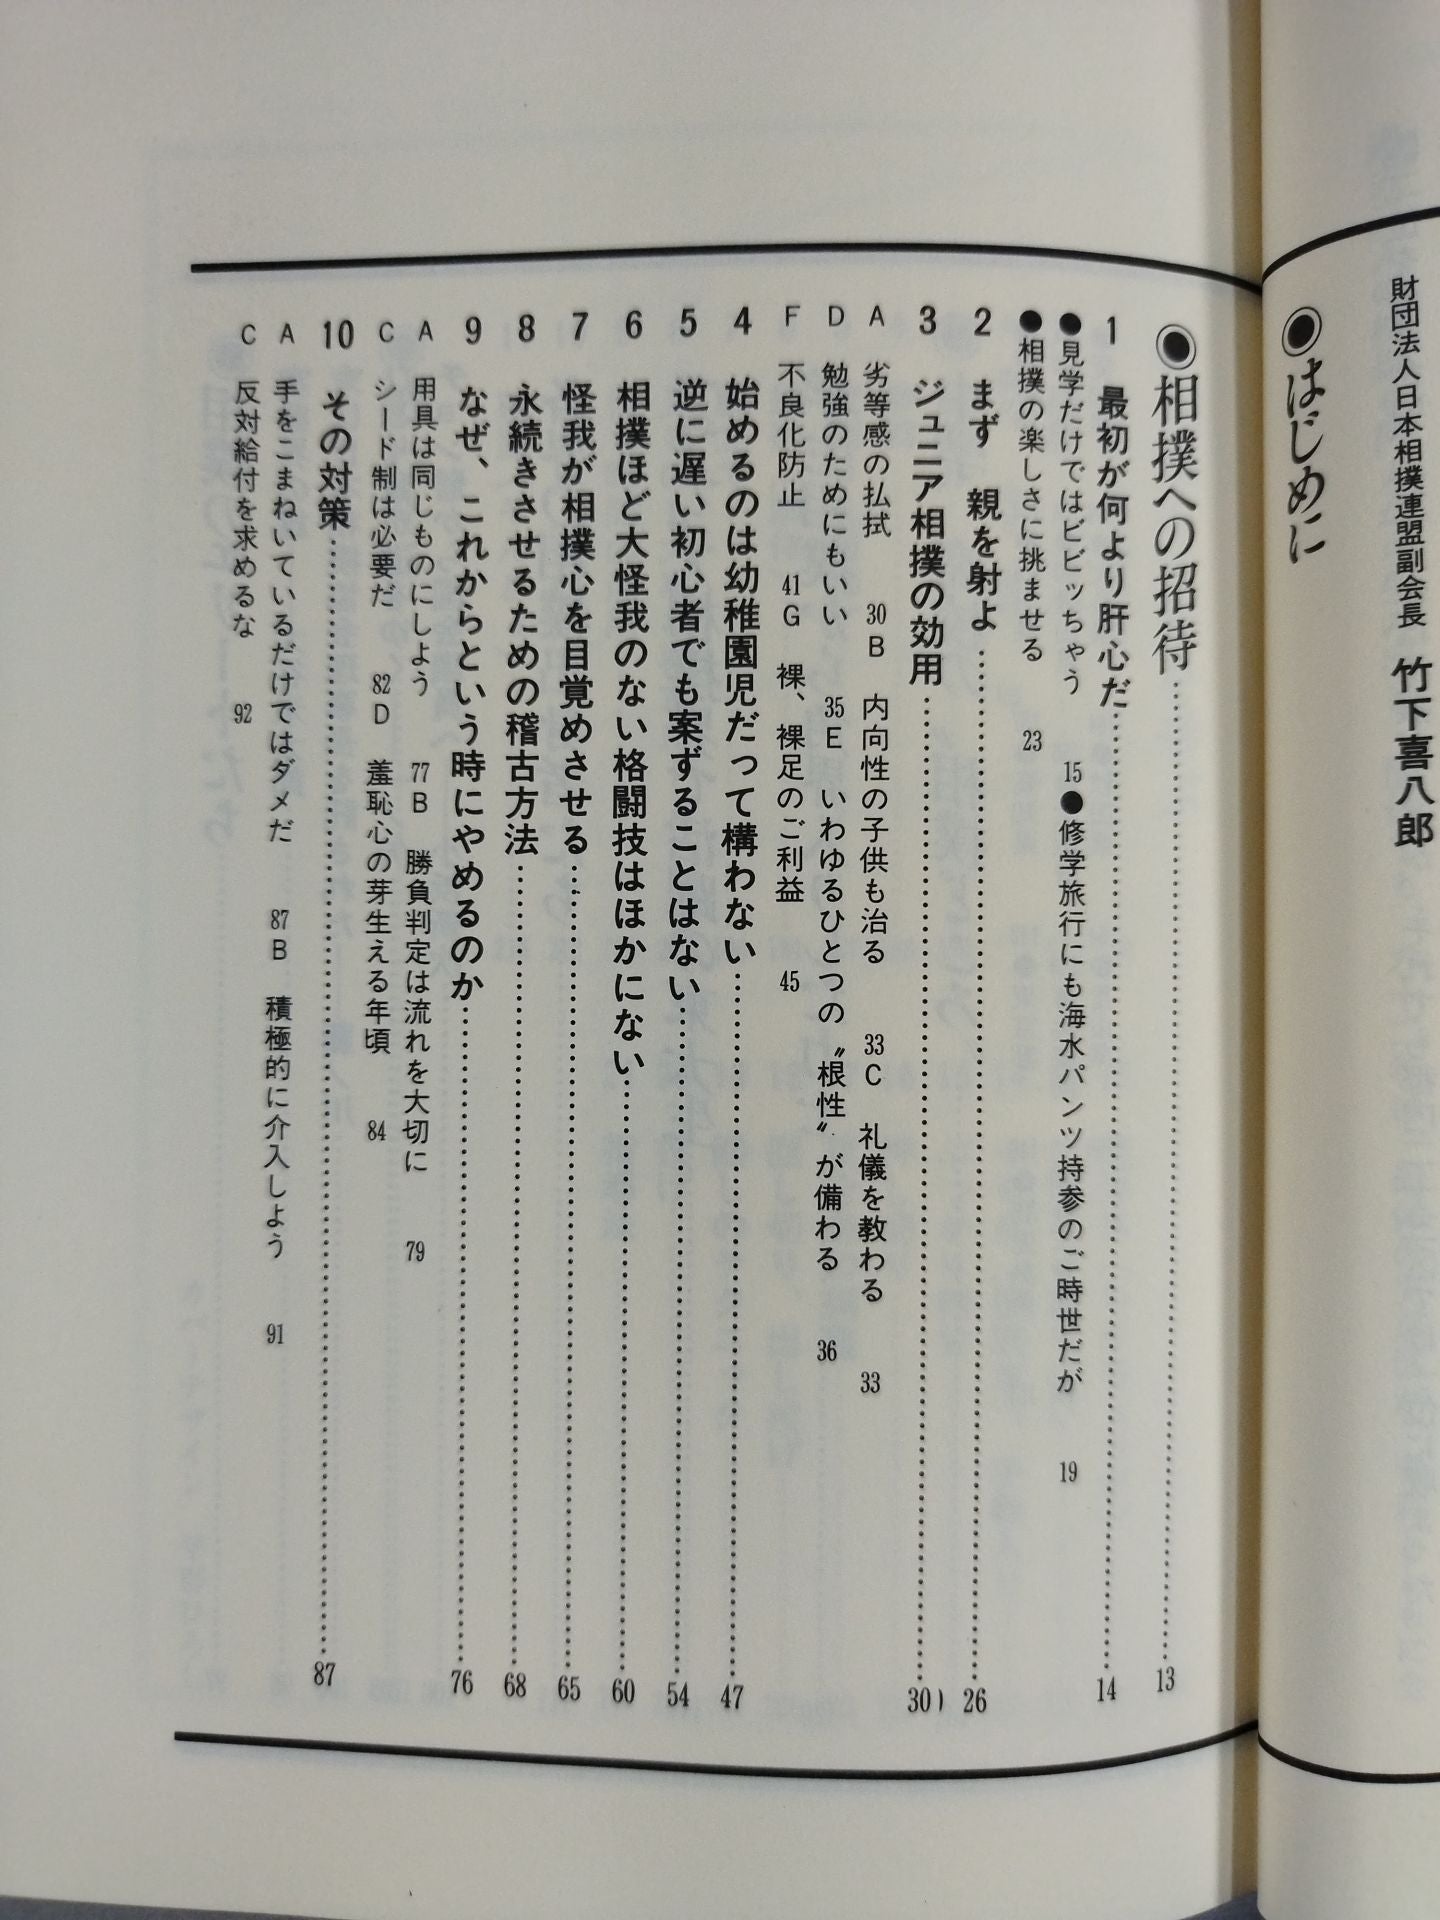 財団法人日本相撲連盟副会長 竹下喜八郎
◉はじめに
◉相撲への招待……13
1 最初が何より肝心だ……14
●見学だけではビビッちゃう 15 ●修学旅行にも海水パンツ持参のご時世だが 19
●相撲の楽しさに挑ませる 23
2 まず 親を射よ……26
3 ジュニア相撲の効用……30
A 劣等感の払拭 30 B 内向性の子供も治る 33 C 礼儀を教わる 33
D 勉強のためにもいい 35 E いわゆるひとつの〝根性〟が備わる 36
F 不良化防止 41 G 裸、裸足のご利益 45
4 始めるのは幼稚園児だって構わない……47
5 逆に遅い初心者でも案ずることはない……54
6 相撲ほど大怪我のない格闘技はほかにない……60
7 怪我が相撲心を目覚めさせる……65
8 永続きさせるための稽古方法……68
9 なぜ、これからという時にやめるのか……76
A 用具は同じものにしよう 77 B 勝負判定は流れを大切に 79
C シード制は必要だ 82 D 羞恥心の芽生える年頃 84
10 その対策……87
A 手をこまねいているだけではダメだ 87 B 積極的に介入しよう 91
C 反対給付を求めるな 92